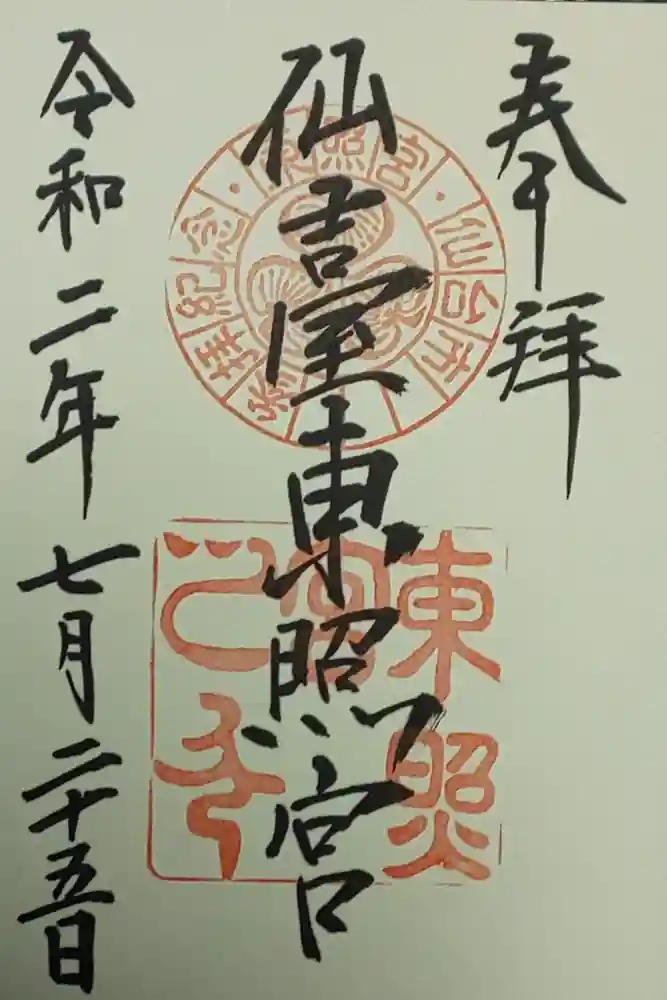 奉拝
仙臺東照宮
令和二年七月二十五日
東照宮
仙台市
参拝紀念
東照
宮